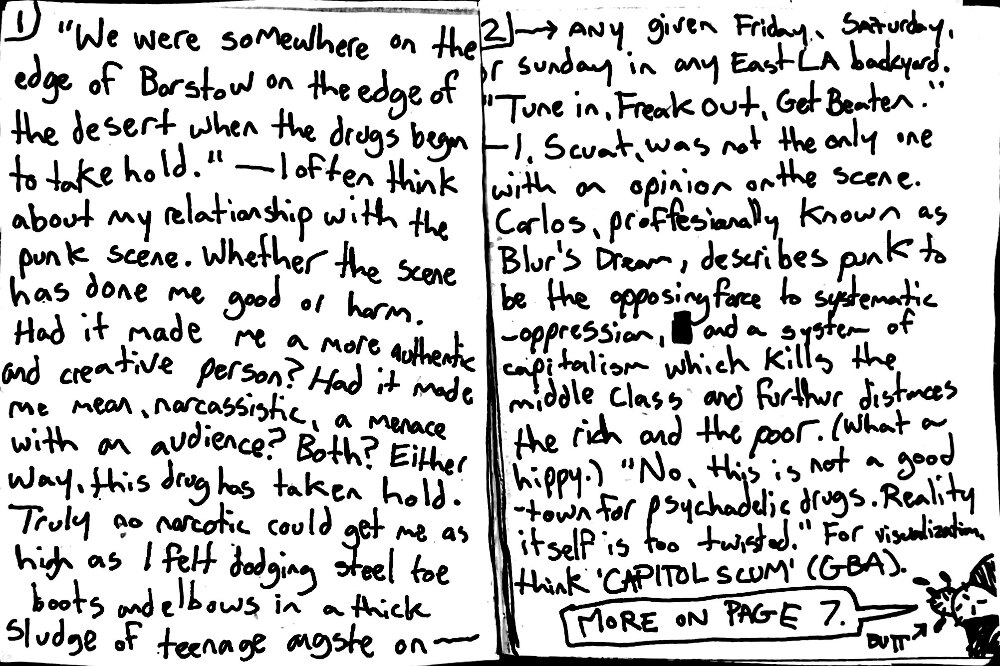 1)
"We were somewhere on the
edge of Barstow on the edge of
the desert when the drugs began
to take hold." — I often think
about my relationship with the
punk scene. Whether the scene
has done me good or harm.
Had it made me a more authentic
and creative person? Had it made
me mean, narcassistic, a menace
with an audience? Both? Either
way, this drug has taken hold.
Truly no narcotic could get me as
high as I felt dodging steel toe
boots and elbows in a thick
sludge of teenage angste on —
2) → ANY given Friday, Saturday,
or sunday in any East LA backyard.
"Tune in, Freak Out, Get Beaten."
— I, Scuat, was not the only one
with an opinion on the scene.
Carlos, proffesionally known as
Blur's Dream, describes punk to
be the opposing force to systematic
-oppression, and a system of
capitalism which kills the
middle class and furthur distances
the rich and the poor. (What a
hippy.) "No, this is not a good
-town for psychadelic drugs. Reality
itself is too twisted." For visualization,
think 'CAPITOL SCUM' (GBA).
MORE ON PAGE 7.
BUTT